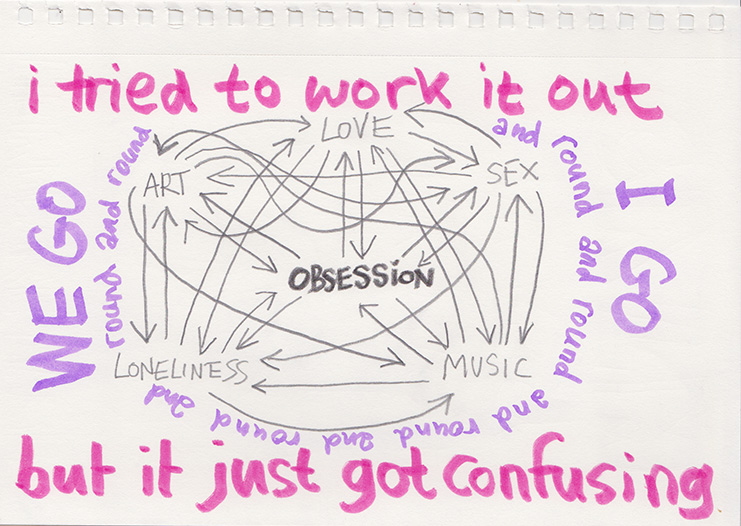 i tried to work it out
LOVE
ART
SEX
OBSESSION
LONELINESS
MUSIC
WE GO
round and round
and round and round and round and round and round and
I GO
but it just got confusing